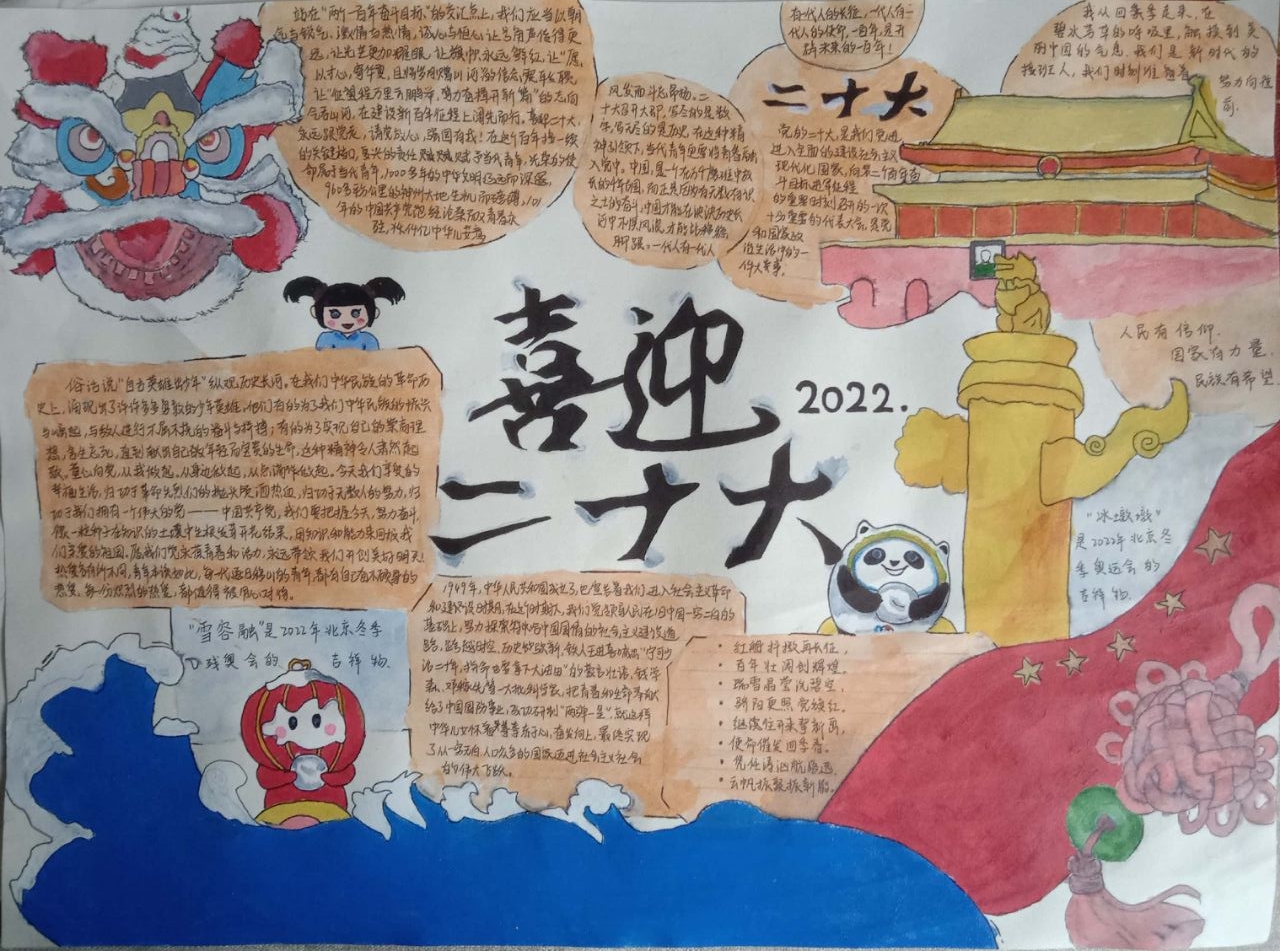 站在"两个一百年奋斗目标"的交汇点上,我们应当以朝
气与锐气,激情与热情,诚心与恒心,让号角声传得更
远,让光芒更加耀眼,让旗帜永远鲜红,让"愿
以寸心,寄华夏,且将岁月赠山河
让"征程万里云鹏举,勇力直
今名山河,在建设新百年征程上
永远跟党走,请党放心,强国有我!在这个百年接一续
的关键档口,复兴的责任
命属于当代青年,5000多年的中华文明辽远而深邃,
960多万公里的神州大地生机而强疆,101
年的中国共产党
劲,
风发而斗志昂扬。二
十大召开大即,
神引领下,当代青年更要将青春融
入党中,中国,是一个在万个磨难中成
长的千年古国,而正是因为有无数有识
之士的奋斗,中国才能在泱泱历史长
河中不惧风浪,才能
脚跟,一代人有一代人
有一代人的长征,一代人有一
代人的使命,一百年,是开
码未来的一百年!
我从四季走来,在
碧水芳草的呼吸里,触摸到美
丽中国的气息,我们是新时代的
接班人,我们时刻准备着,努力向往
前.
二十大
党的二十大,是我们党进
进入全面的建设社会主义
现代化国家,向第二个百年奋
斗目标进军征程
的重要时刻召开的一次
十分重要的代表大会,是党
和国家政
治生活中的一
件大事.
喜迎
2022.
二十大
人民有信仰.
国家有力量.
民族有希望
俗话说"自古英雄出少年"纵观历史长河,在我们中华民族的革命历
史上,涌现出了许许多多勇敢的少年英雄,他们有的为了我们中华民族的振兴
与崛起,与敌人进行不屈不挠的奋斗与拼搏;有的为了实现自己的崇高理
想,舍生忘死,直到献出自己最年轻而宝贵的生命,这种精神令人肃然起
敬。童心向党,从我做起,从身边做起,从点滴作做起。今天我们享受的
幸福生活,归功于革命先烈们的抛头颅洒热血,归功于无数人的努力,归
功于我们拥有一个伟大的党——中国共产党,我们要把握今天,努力奋斗,
像一粒种子在知识的土壤中生根发芽开花结果,用知识和能力来回报我
们亲爱的祖国。愿我们党永葆青春和活力,永远带领我们开创美好明天!
热爱各有所不同,青年本该如此,每一代逐日移山的青年,都有自己奋不顾身的
热爱,每一份炽烈的热爱,都值得被用心对待。
"雪容融"是2022年北京冬季
残奥会的 吉祥物.
1949年,中华人民共和国成立了,也宣告着我们,进入社会主义革命
和建设时期,在这个时期,我们党领导人民在旧中国一穷二白的
基础上,努力探索符合中国国情的社会主义建设道
路,跨越时空,历史的跫新,铁人王进喜喊出"宁可少
活二十年,拼命也要拿下大油田"的豪言壮语,钱学
森、邓稼先等一大批科学家,把青春和生命奉献
给了中国国防事业,成功研制"两弹一星",就这样
中华儿女怀着梦善喜于心,奋发向上,最终实现
了从一穷二白,人口众多的国家迈进社会主义社会
的伟大飞跃。
• 红船抖擞再长征,
• 百年壮阔创辉煌。
• 瑞雪晶莹洗碧空,
• 朝阳更照党旗红。
• 继续任开来犁新函,
• 使命催笑四季春。
• 凭任涛汹航路远,
• 云帆振聚振新船。
"冰墩墩"
是2022年北京冬
季奥运会的
吉祥物.